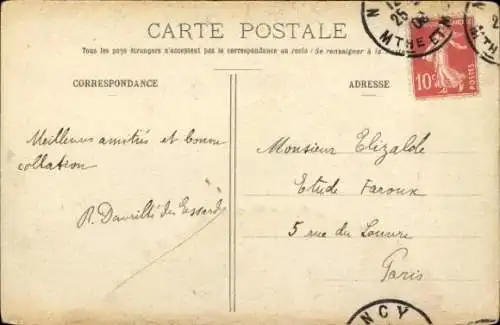 CARTE POSTALE
Tous les pays étrangers n'acceptent pas la correspondance au recto (Se renseigner à la
CORRESPONDANCE
ADRESSE
10c
25
08
MTHE ET M
Meilleures amitiés et bonne
collation
R.
Monsieur Elizalde
Etude Faroux
5 rue du Louvre
Paris
NCY